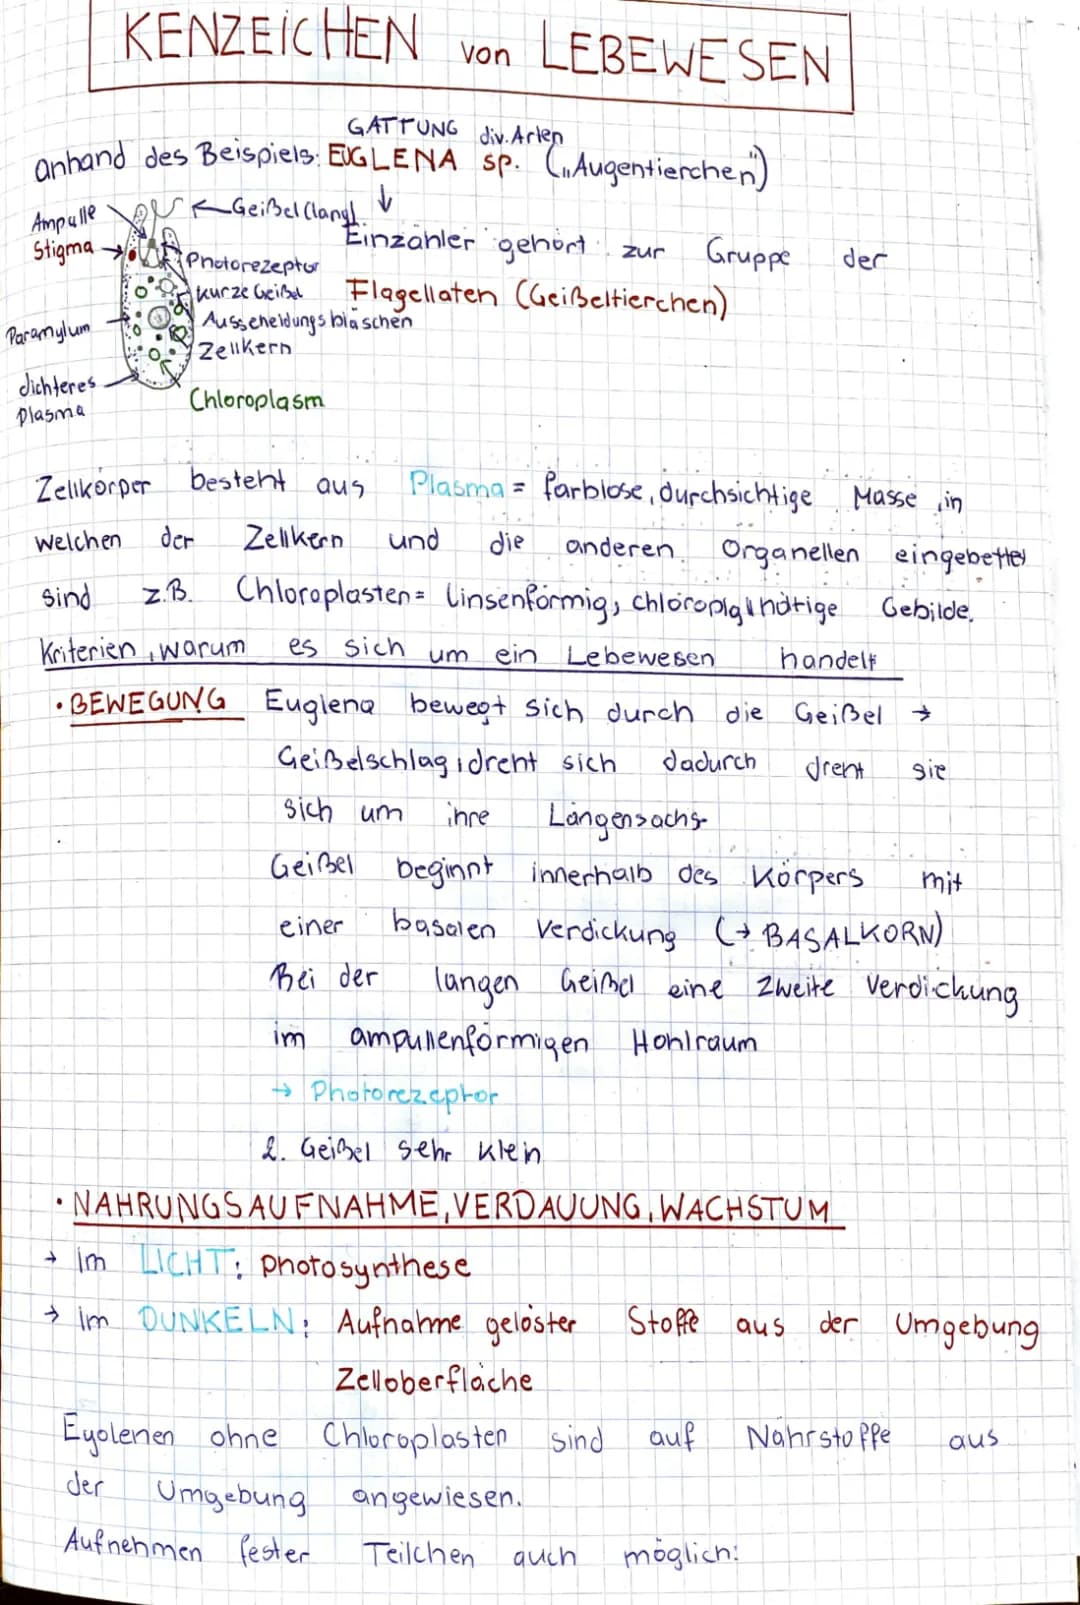 KENZEICHEN von LEBEWESEN
GATTUNG div. Arten
anhand des Beispiels: EUGLENA sp. („Augentierchen")
Ampulle
Geißel (lang)
Stigma
Einzähler gehört zur Gruppe der
Photorezeptor
kurze Geißel
Flagellaten (Geißeltierchen)
Ausscheidungsbläschen
Paramylum
Zellkern
dichteres
Plasma
Chloroplasm
Zellkörper besteht aus Plasma = farblose, durchsichtige Masse, in
welchen der Zellkern und die anderen Organellen eingebettet
sind z.B. Chloroplasten = linsenförmig, Gebilde.
Kriterien, warum es sich um ein Lebewesen handelt
• BEWEGUNG Euglena bewegt sich durch die Geißel →
Geißelschlag, dreht sich dadurch dreht sie
sich um ihre Längensachs
Geißel beginnt innerhalb des Körpers mit
einer basalen Verdickung (→ BASALKORN)
Bei der langen Geißel eine zweite Verdickung
im ampullenförmigen Hohlraum
→ Photorezeptor
2. Geißel sehr klein
• NAHRUNGSAUFNAHME, VERDAUUNG, WACHSTUM
→ im LICHT: photosynthese
→ im DUNKELN: Aufnahme gelöster Stoffe aus der Umgebung
Zelloberfläche
Eyolenen ohne Chloroplasten sind auf Nährstoffe aus
der Umgebung angewiesen.
Aufnehmen fester Teilchen auch möglich: